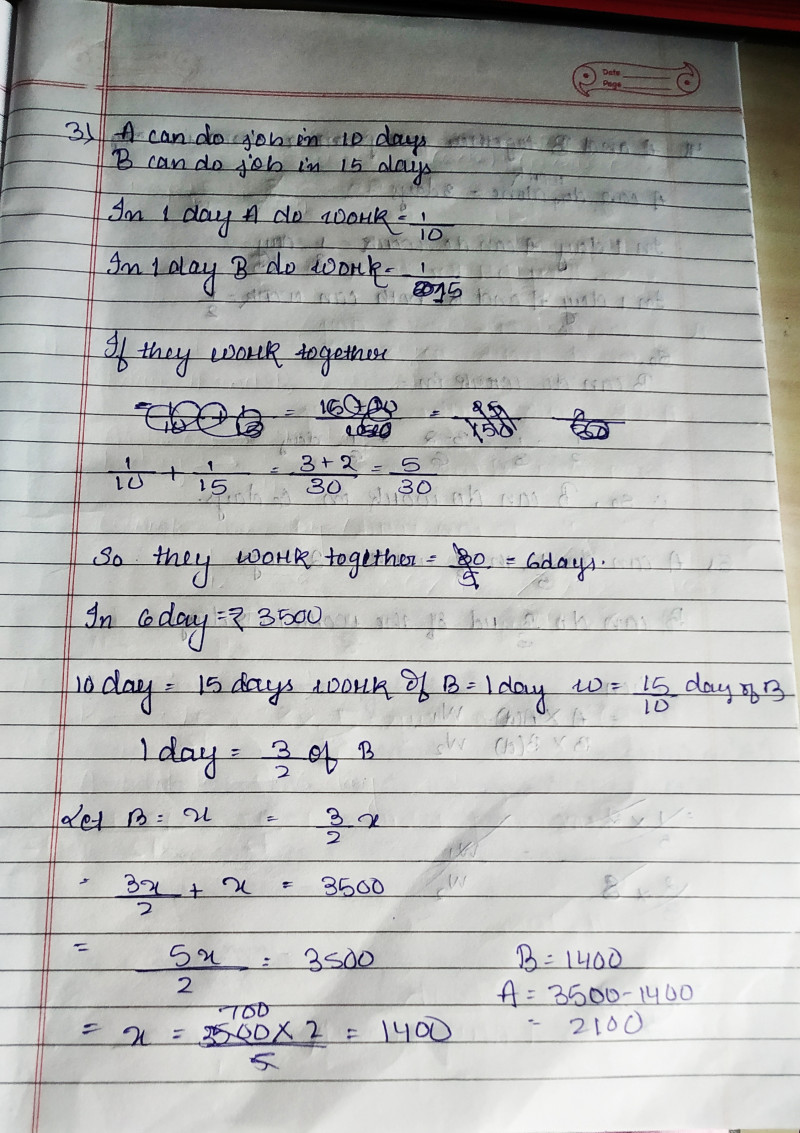 Date
Page
3) A can do job in 10 days
B can do job in 15 days
In 1 day A do work = 1/10
In 1 day B do work = 1/15
If they work together
1/10 + 1/15 = 3+2/30 = 5/30
So they work together = 30/5 = 6 days.
In 6 day = ₹ 3500
10 day = 15 days work of B = 1 day w = 15/10 day of B
1 day = 3/2 of B
Let B = x = 3/2 x
= 3x/2 + x = 3500
= 5x/2 = 3500
B = 1400
A = 3500 - 1400
= 2100
= x = 700 3500 × 2/5 = 1400